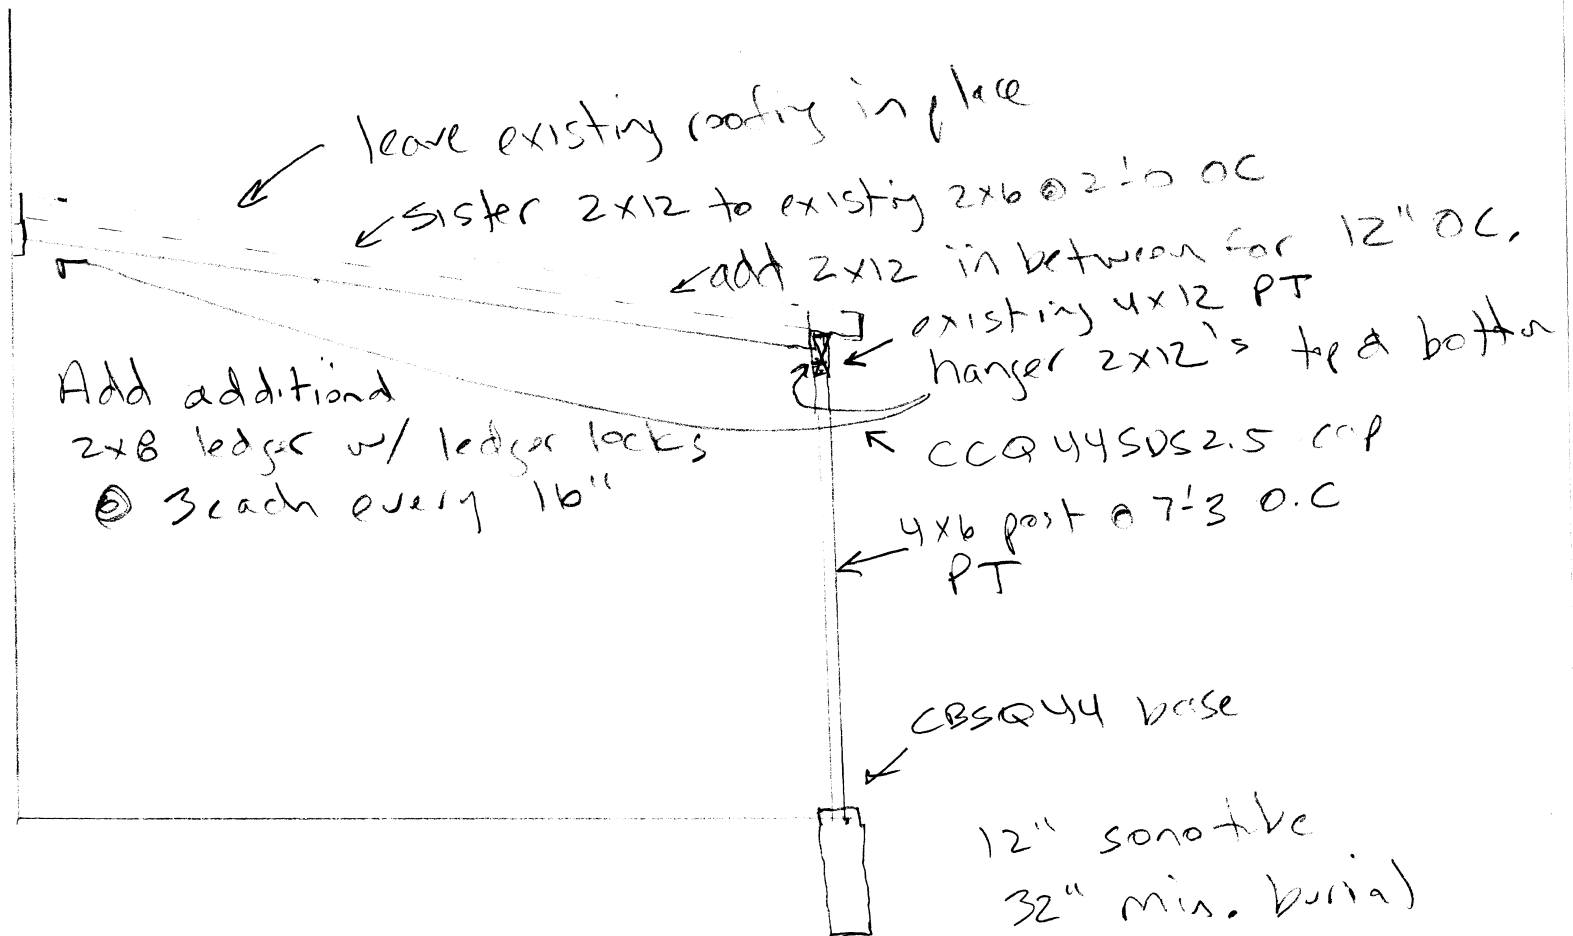 leave existing roofing in place
sister 2x12 to existing 2x6 @ 2'-0 OC
add 2x12 in between for 12" OC.
existing 4x12 PT
hanger 2x12's top & bottom
Add additional
2x8 ledger w/ ledger locks
@ 3 each every 16"
CCQ44SDS2.5 cap
4x6 post @ 7'-3 O.C
PT
CBSQ44 base
12" sonotube
32" min. burial